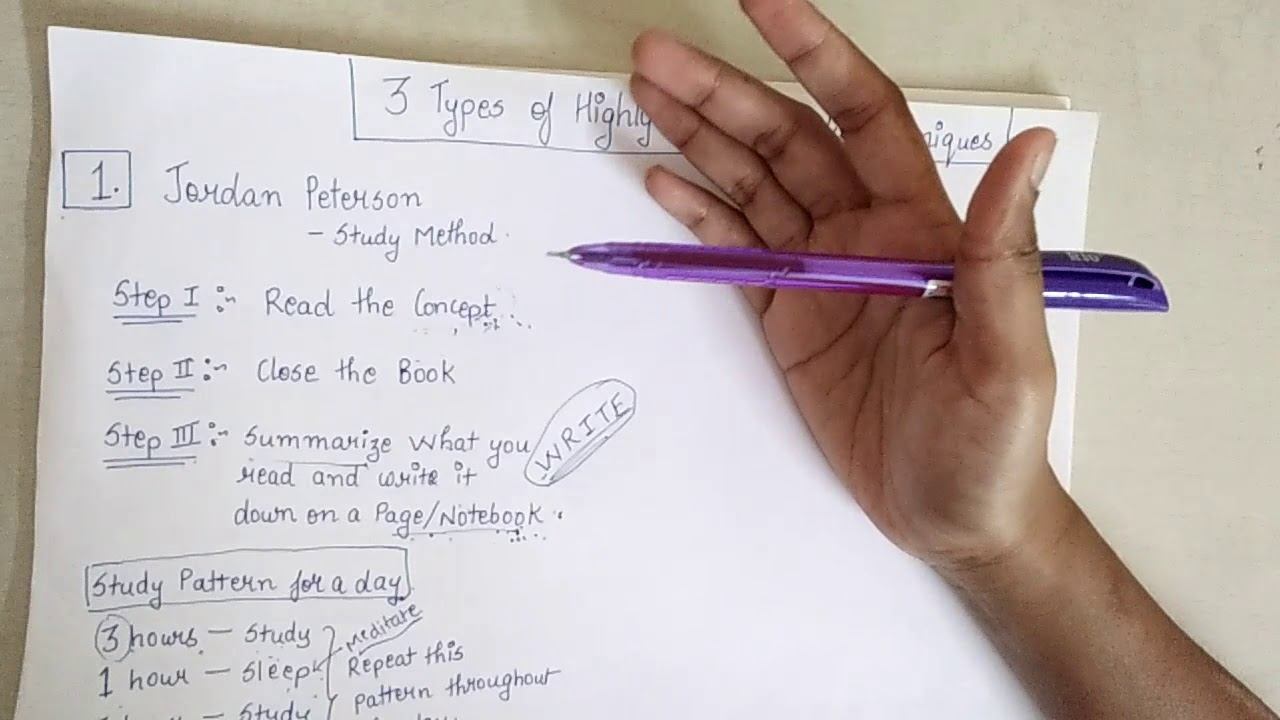 3 Types of Highly
1. Jordan Peterson
- Study Method.
Step I :- Read the Concept
Step II :- Close the Book
Step III :- Summarize what you
read and write it
down on a Page/Notebook.
WRITE
Study Pattern for a day
3 hours - Study
Meditate
1 hour - Sleep
Repeat this
pattern throughout
Study